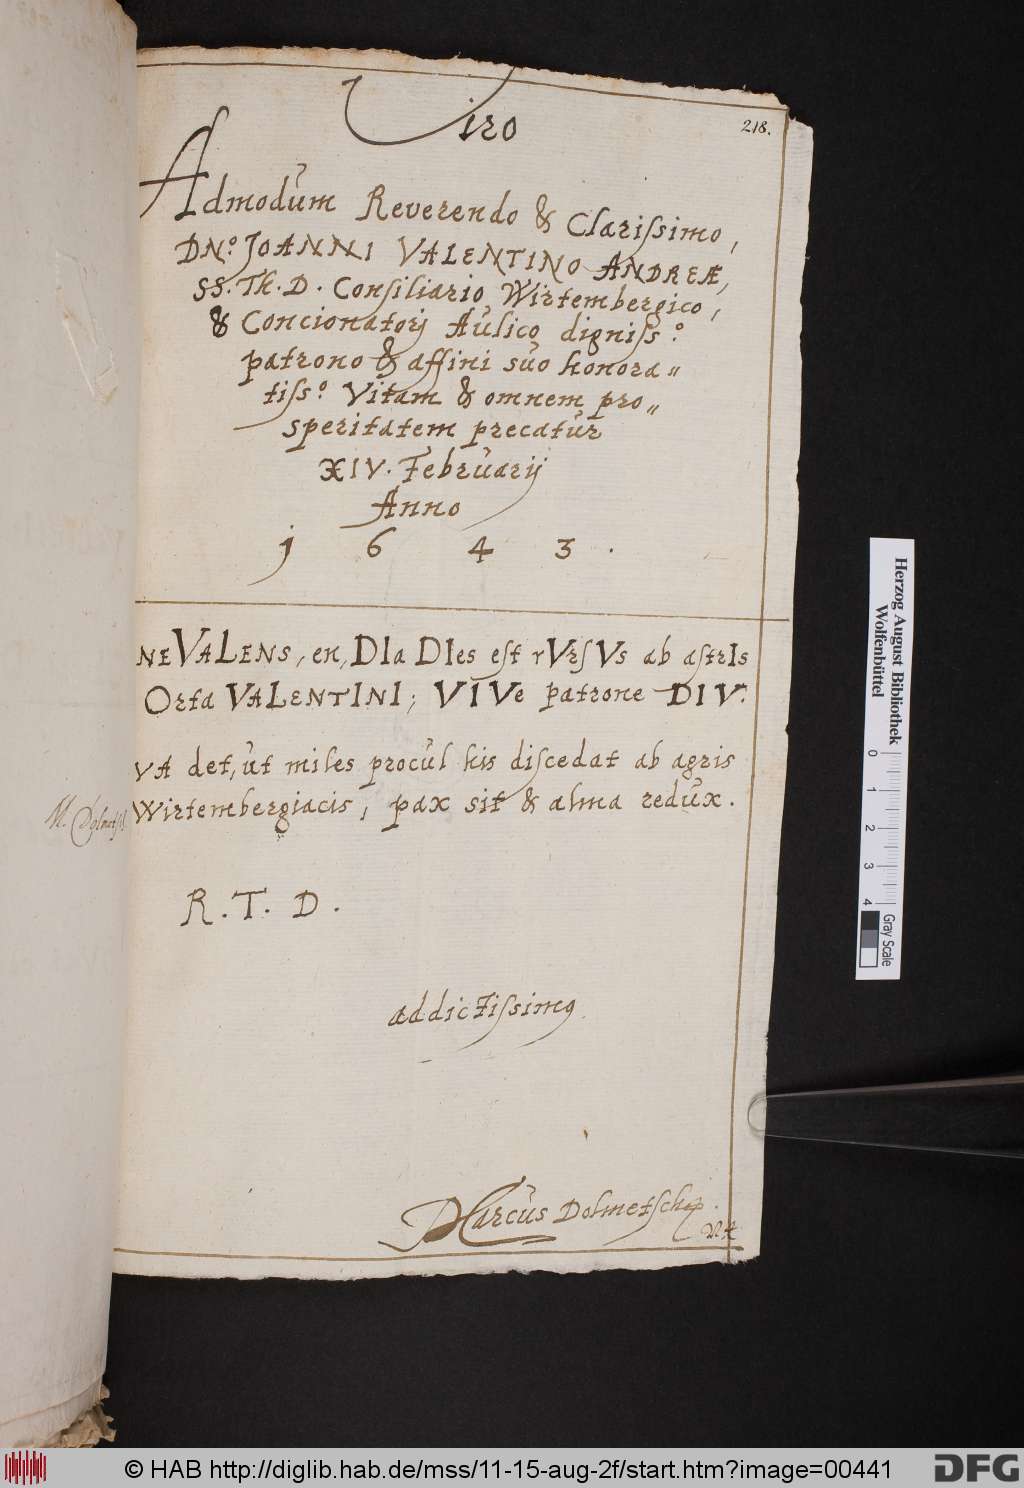 218.
Viro
Admodům Reverendo & Clariſsimo,
DN.º JOANNI VALENTINO ANDREÆ,
SS. Th. D. Conſiliario Wirtembergico,
& Concionatorj Aůlico digniſs.º
patrono & affini sůo honora„
tiſs.º Vitam & omnem pro„
speritatem precatůr
XIV. Febrůarij
Anno
j 6 4 3.
NEVALENS, en, DIa DIes eſt rVrſVs ab aſtrIs
Orta VALENTINI; VIVe patrone DIV.
VA det, ůt miles procůl his diſcedat ab agris
Wirtembergiacis, pax sit & alma redůx.
M.
R. T. D.
addictiſsimꝰ
Marcůs Dolmetſchꝰ.
Herzog August Bibliothek
Wolfenbüttel
0 1 2 3 4
Gray Scale
© HAB http://diglib.hab.de/mss/11-15-aug-2f/start.htm?image=00441
DFG